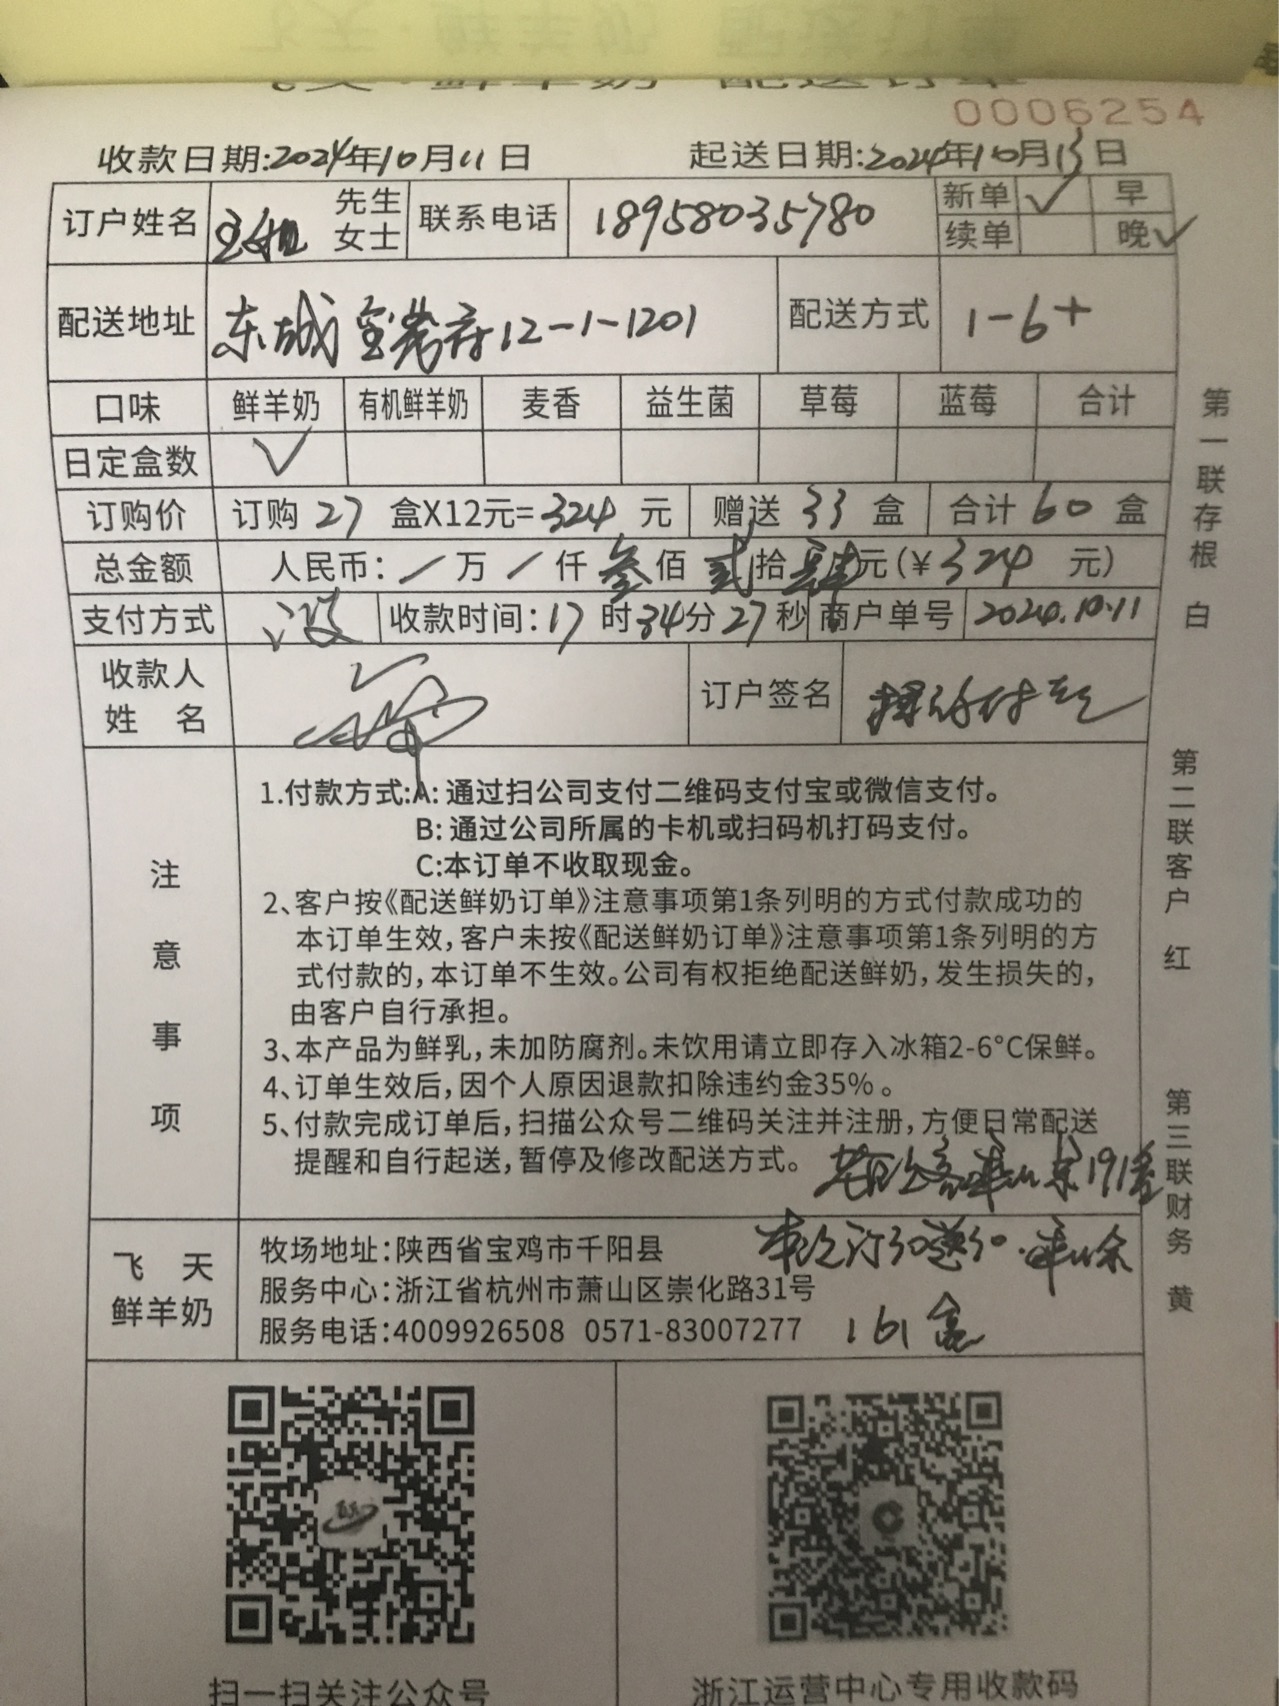 飞天·鲜羊奶 配送订单
0006254
收款日期:2024年10月11日 起送日期:2024年10月13日
订户姓名 先生 女士 联系电话 18958035780 新单 ✓ 早
续单 晚 ✓
配送地址 东城 府12-1-1201 配送方式 1-6+
口味 鲜羊奶 有机鲜羊奶 麦香 益生菌 草莓 蓝莓 合计
日定盒数 ✓
订购价 订购 27 盒X12元=324 元 赠送 33 盒 合计 60 盒
总金额 人民币: / 万 / 仟 叁 佰 贰 拾 肆 元(¥324 元)
支付方式 收款时间:17时34分27秒 商户单号 2024.10.11
收款人姓名 订户签名 扫码付款
注意事项
1.付款方式:A:通过扫公司支付二维码支付宝或微信支付。
B:通过公司所属的卡机或扫码机打码支付。
C:本订单不收取现金。
2、客户按《配送鲜奶订单》注意事项第1条列明的方式付款成功的
本订单生效,客户未按《配送鲜奶订单》注意事项第1条列明的方
式付款的,本订单不生效。公司有权拒绝配送鲜奶,发生损失的,
由客户自行承担。
3、本产品为鲜乳,未加防腐剂。未饮用请立即存入冰箱2-6°C保鲜。
4、订单生效后,因个人原因退款扣除违约金35%。
5、付款完成订单后,扫描公众号二维码关注并注册,方便日常配送
提醒和自行起送,暂停及修改配送方式。
余191盒
飞天鲜羊奶
牧场地址:陕西省宝鸡市千阳县
订30送30. 余
服务中心:浙江省杭州市萧山区崇化路31号
服务电话:4009926508 0571-83007277 161盒
扫一扫关注公众号 浙江运营中心专用收款码
第一联存根 白
第二联客户 红
第三联财务 黄